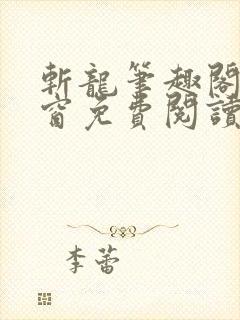 斬龍筆趣閣
窗免費閱讀
李蕾